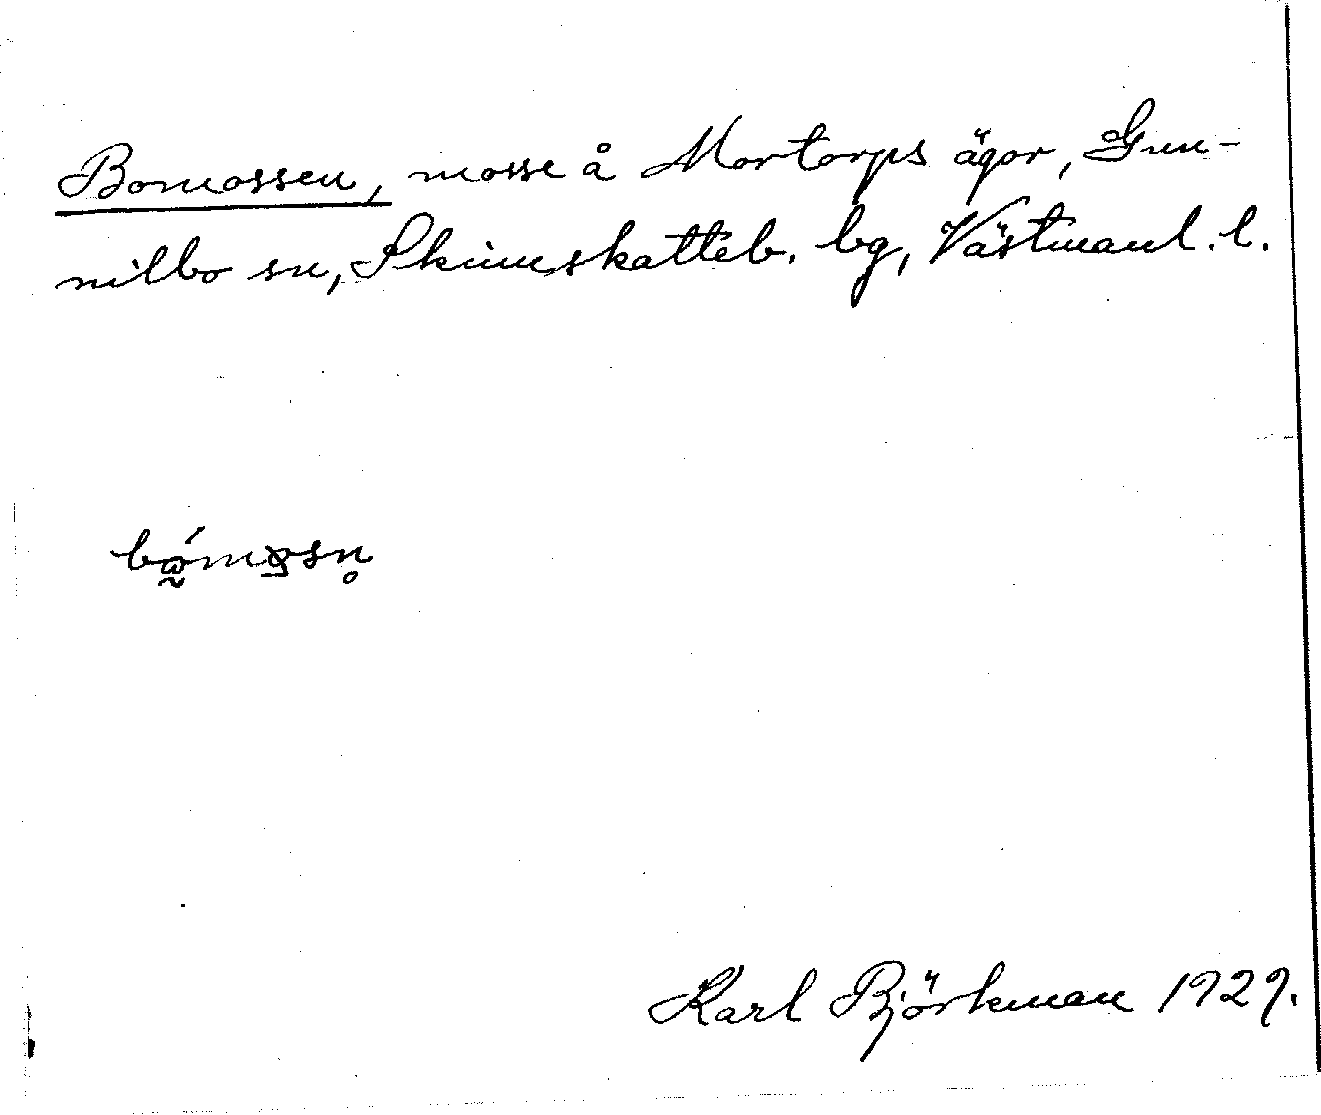 Bomossen, mosse å Mortorps ägor, Gun-
nilbo sn, Skinnskatteb. bg, Västmanl. l.
Karl Björkman 1929.